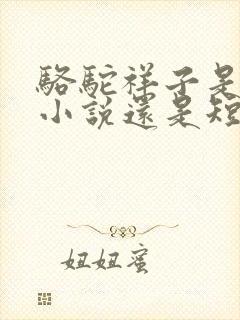 駱駝祥子是
小說還是短
妞妞蜜